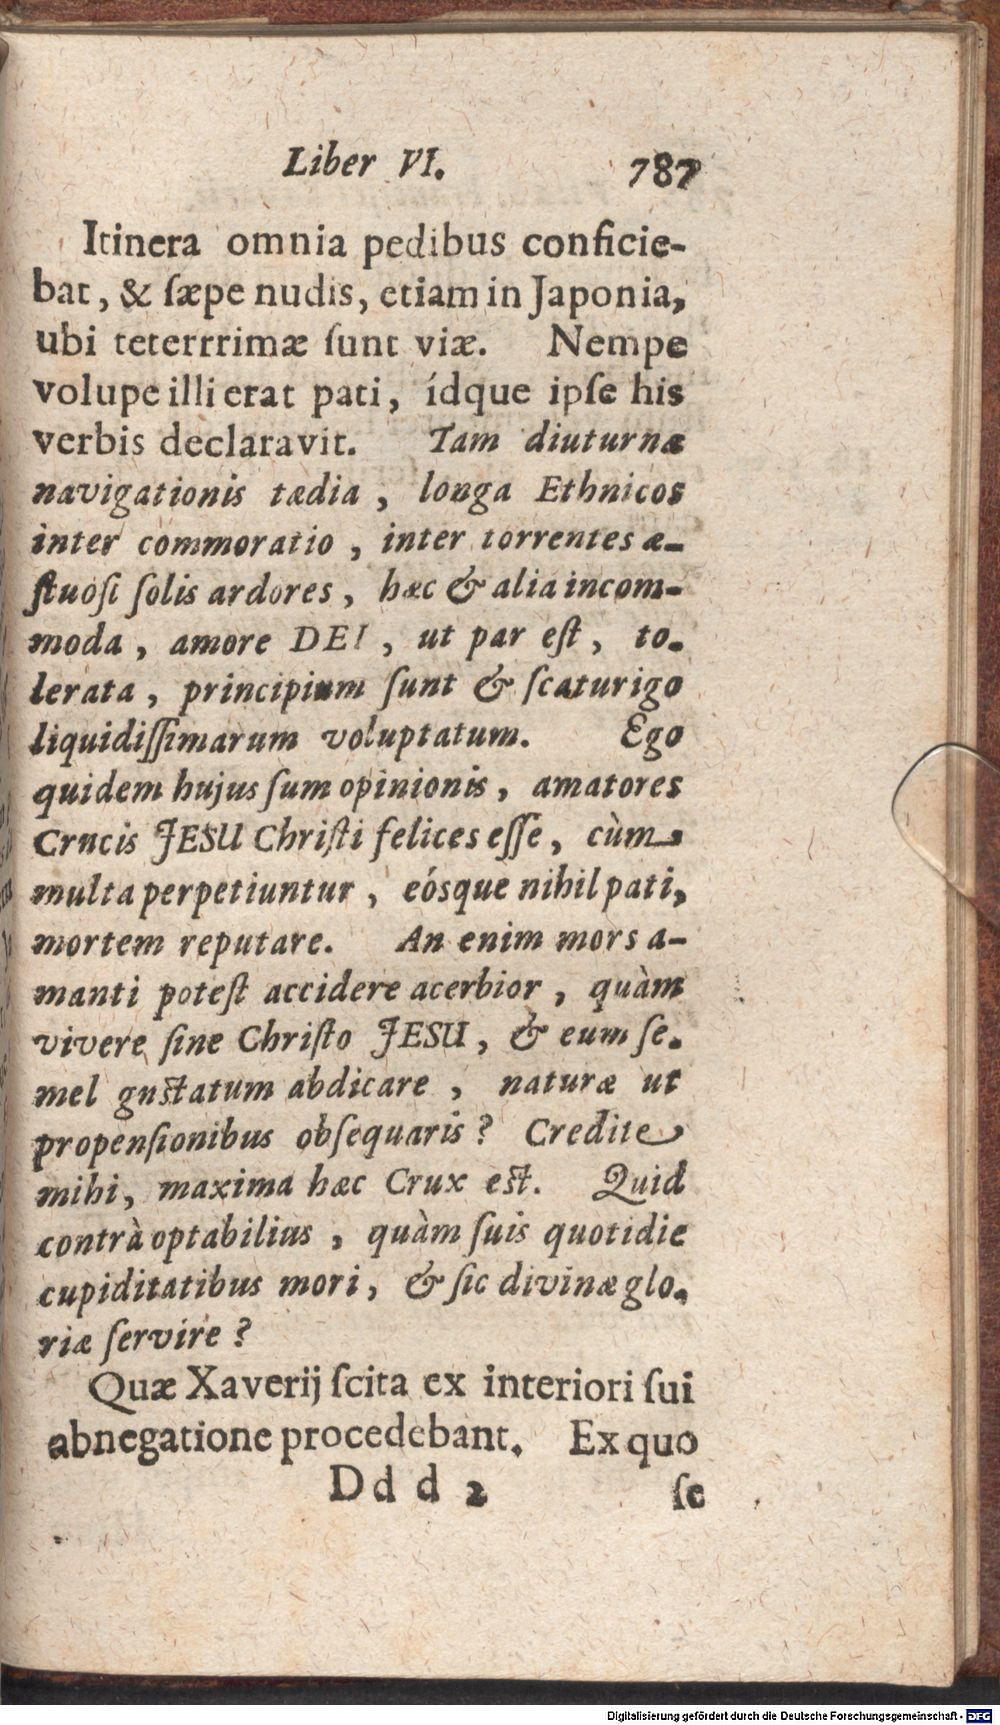 Liber VI. 787
Itinera omnia pedibus conficie-
bat, & ſæpe nudis, etiam in Japonia,
ubi teterrrimæ ſunt viæ. Nempe
volupe illi erat pati, ídque ipſe his
verbis declaravit. Tam diuturnæ
navigationis tædia, longa Ethnicos
inter commoratio, inter torrentes æ-
ſtuoſi ſolis ardores, hæc & alia incom-
moda, amore DEI, ut par eſt, to-
lerata, principium ſunt & ſcaturigo
liquidiſſimarum voluptatum. Ego
quidem hujus ſum opinionis, amatores
Crucis JESU Chriſti felices eſſe, cùm
multa perpetiuntur, eósque nihil pati,
mortem reputare. An enim mors a-
manti poteſt accidere acerbior, quàm
vivere ſine Chriſto JESU, & eum ſe-
mel guſtatum abdicare, naturæ ut
propenſionibus obſequaris? Credite
mihi, maxima hæc Crux eſt. Quid
contrà optabilius, quàm ſuis quotidie
cupiditatibus mori, & ſic divinæ glo-
riæ ſervire?
Quæ Xaverij ſcita ex interiori ſui
abnegatione procedebant. Ex quo
Ddd 2 ſe
Digitalisierung gefördert durch die Deutsche Forschungsgemeinschaft - DFG